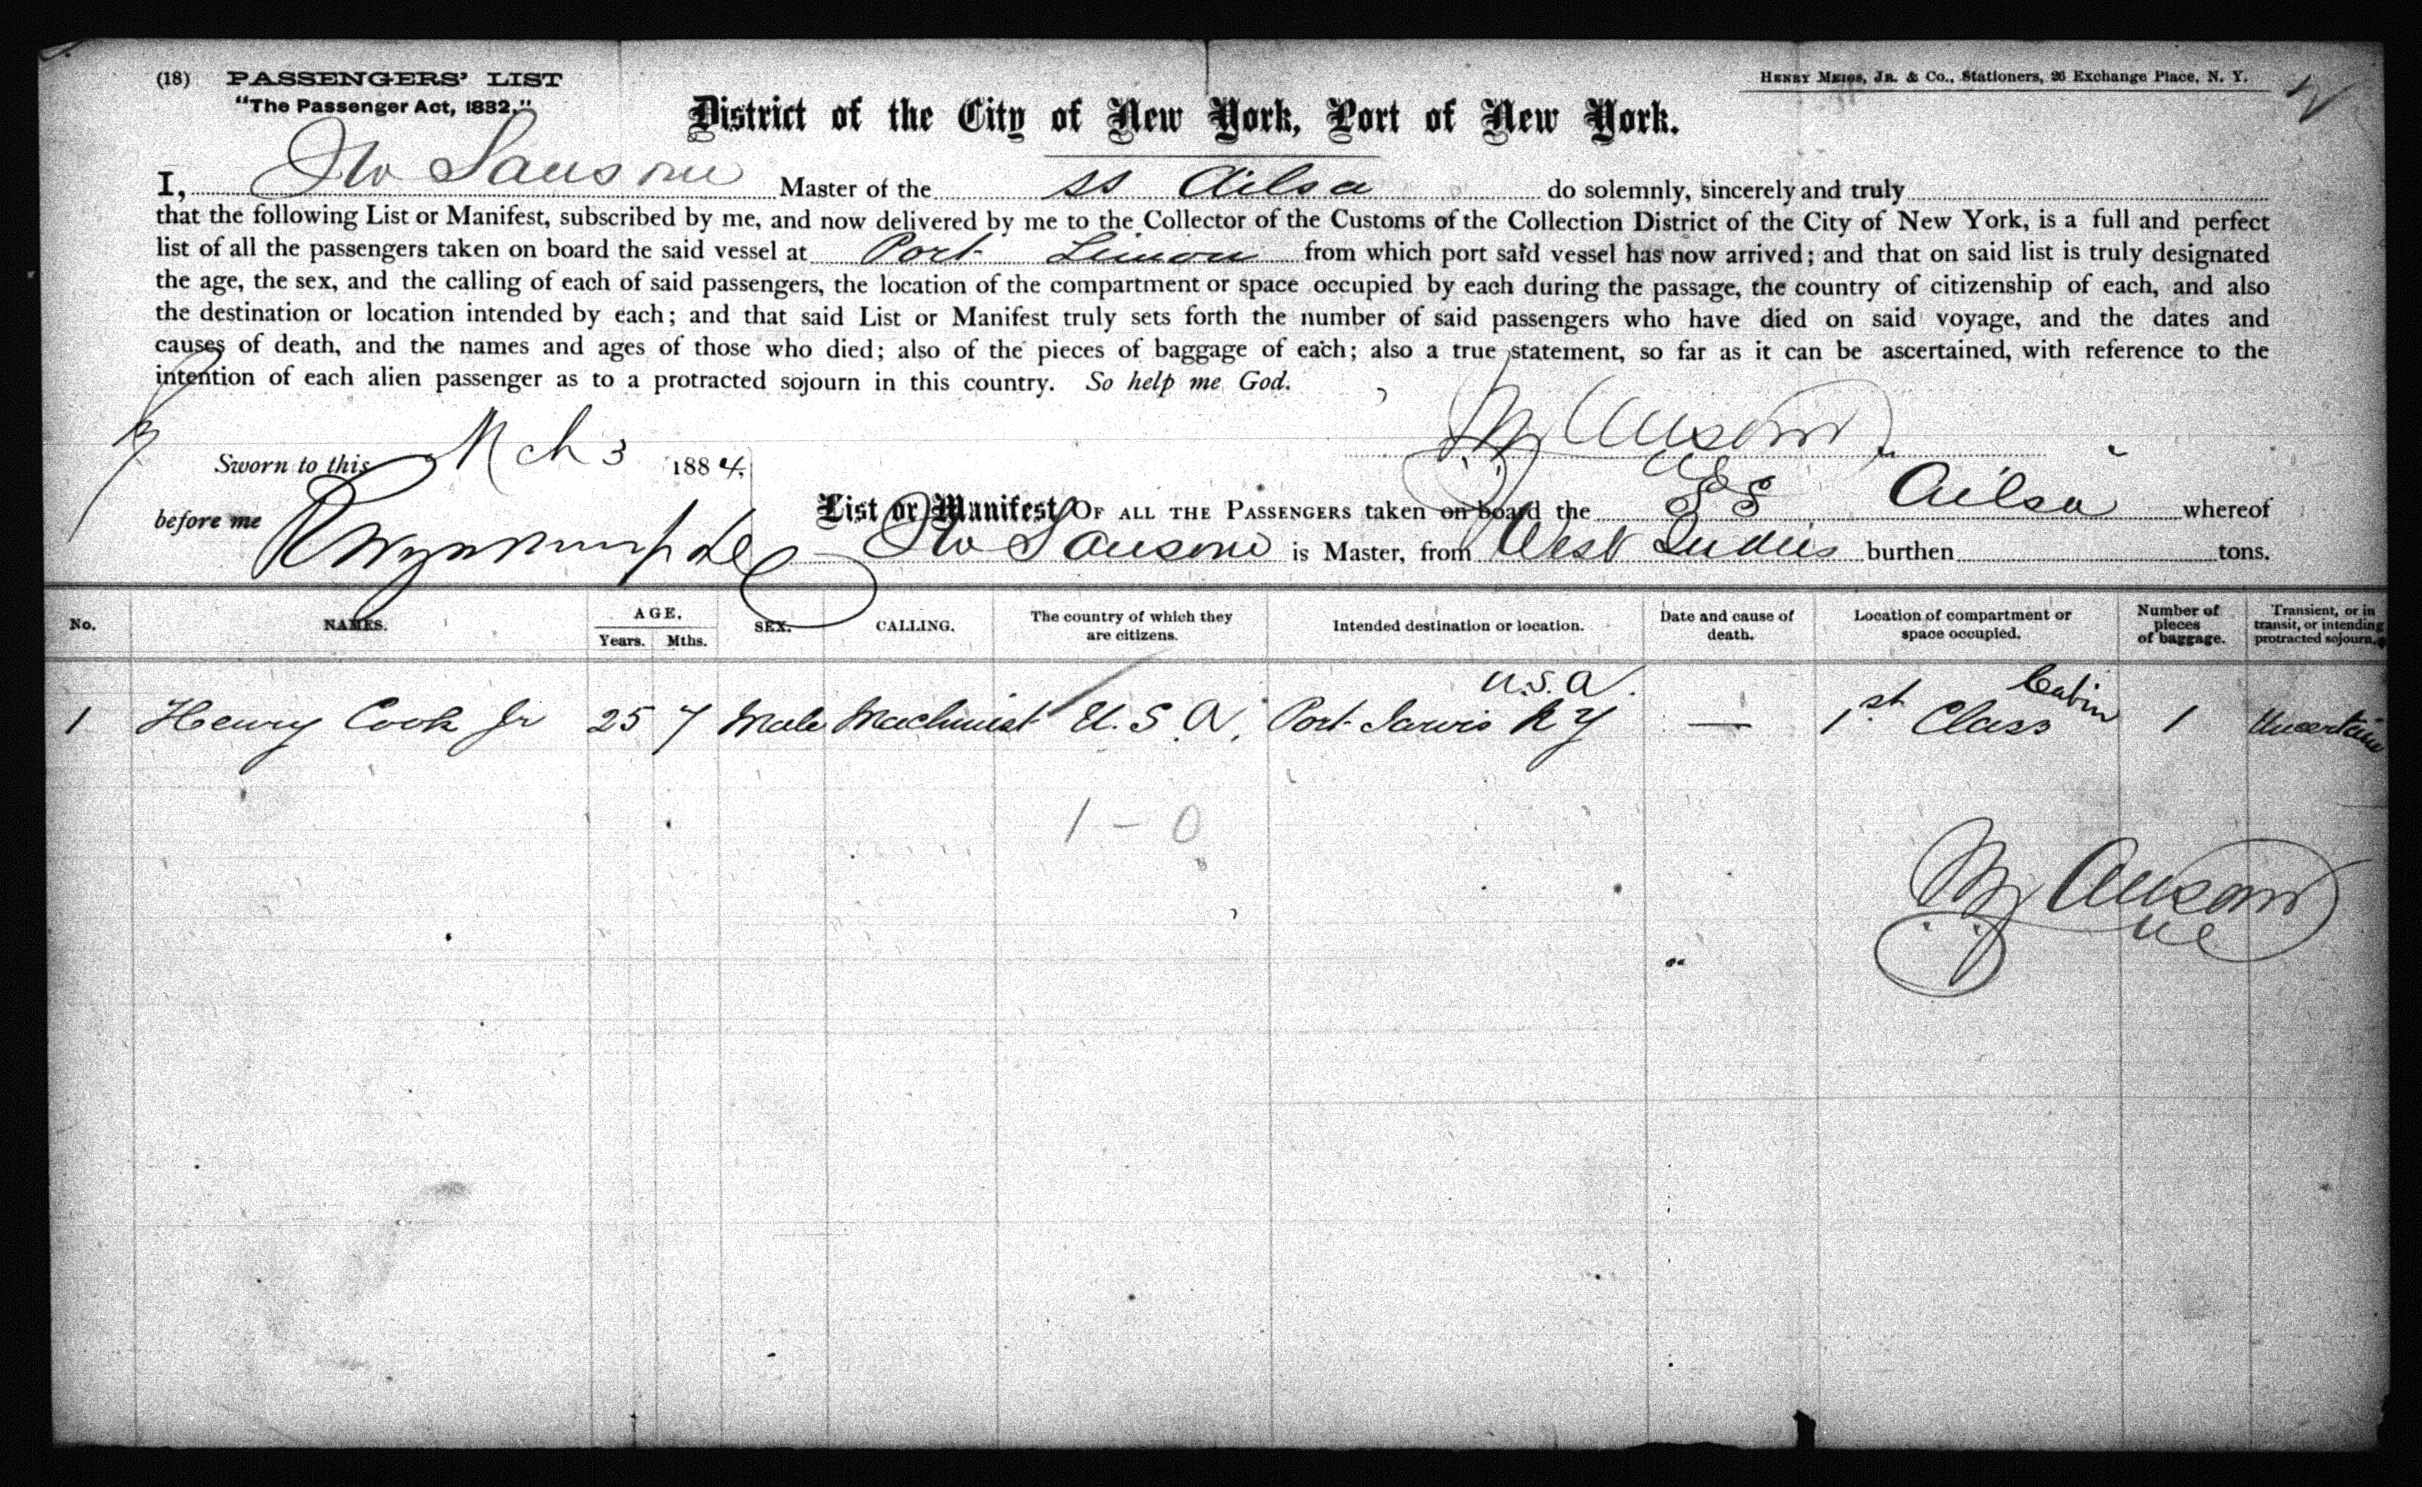 (18) PASSENGERS' LIST
"The Passenger Act, 1882."
Henry Meigs, Jr. & Co., Stationers, 26 Exchange Place, N. Y.
District of the City of New York, Port of New York.
I, Jno Sansom Master of the SS Ailsa do solemnly, sincerely and truly
that the following List or Manifest, subscribed by me, and now delivered by me to the Collector of the Customs of the Collection District of the City of New York, is a full and perfect
list of all the passengers taken on board the said vessel at Port Limon from which port said vessel has now arrived; and that on said list is truly designated
the age, the sex, and the calling of each of said passengers, the location of the compartment or space occupied by each during the passage, the country of citizenship of each, and also
the destination or location intended by each; and that said List or Manifest truly sets forth the number of said passengers who have died on said voyage, and the dates and
causes of death, and the names and ages of those who died; also of the pieces of baggage of each; also a true statement, so far as it can be ascertained, with reference to the
intention of each alien passenger as to a protracted sojourn in this country. So help me God.
Sworn to this Mch 3 1884
before me
List or Manifest OF ALL THE PASSENGERS taken on board the SS Ailsa whereof
Jno Sansom is Master, from West Indies burthen tons.
No. NAMES. AGE. Years. Mths. SEX. CALLING. The country of which they are citizens. Intended destination or location. Date and cause of death. Location of compartment or space occupied. Number of pieces of baggage. Transient, or in transit, or intending protracted sojourn.
1 Henry Cook Jr 25 7 Male Machinist U.S.A. Port Jarvis N Y U.S.A. — 1st Class Cabin 1 Uncertain
1 - 0